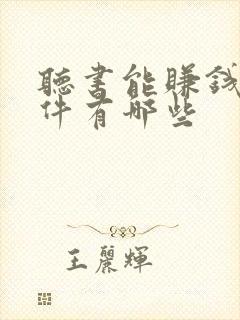 聽書能賺錢
件有哪些
王麗輝